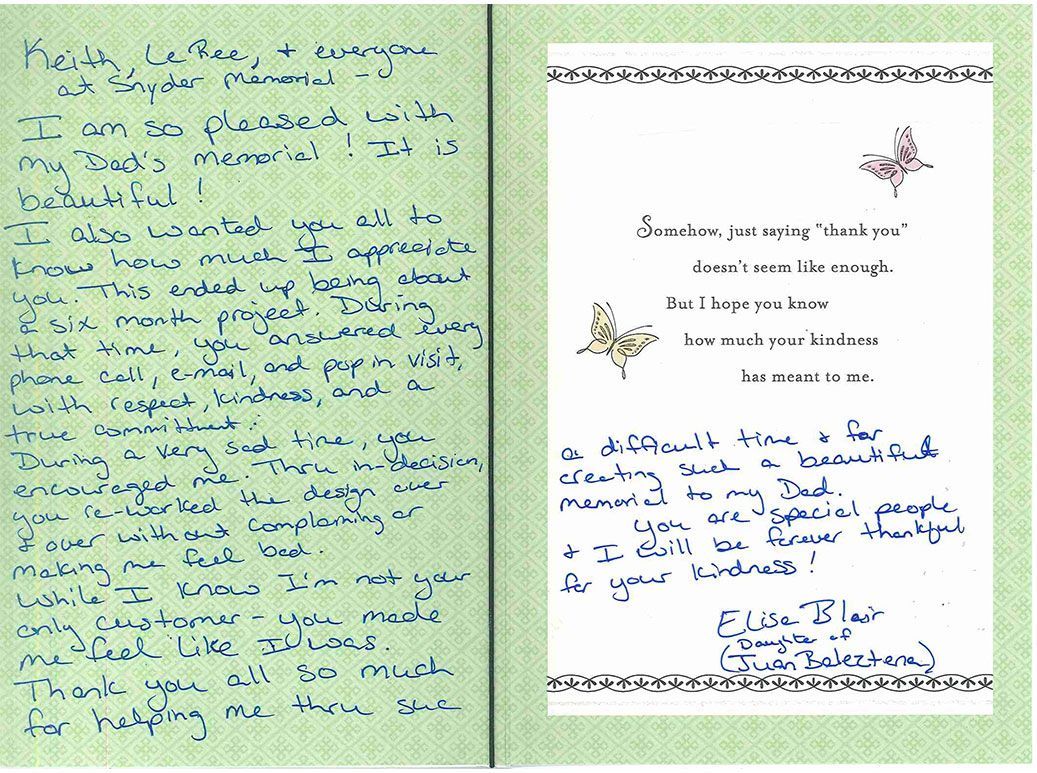 Keith, LeRee, + everyone
at Snyder Memorial -
I am so pleased with
my Dad's memorial! It is
beautiful!
I also wanted you all to
know how much I appreciate
you. This ended up being about
a six month project. During
that time, you answered every
phone call, e-mail, and pop in visit,
with respect, kindness, and a
true committment.
During a very sad time, you
encouraged me. Thru in-decision,
you re-worked the design over
+ over without complaining or
making me feel bad.
While I know I'm not your
only customer - you made
me feel like I was.
Thank you all so much
for helping me thru suc
Somehow, just saying "thank you"
doesn't seem like enough.
But I hope you know
how much your kindness
has meant to me.
a difficult time + for
creating such a beautiful
memorial to my Dad.
You are special people
+ I will be forever thankful
for your kindness!
Elisa Blair
Daughter of
(Juan Baleztena)